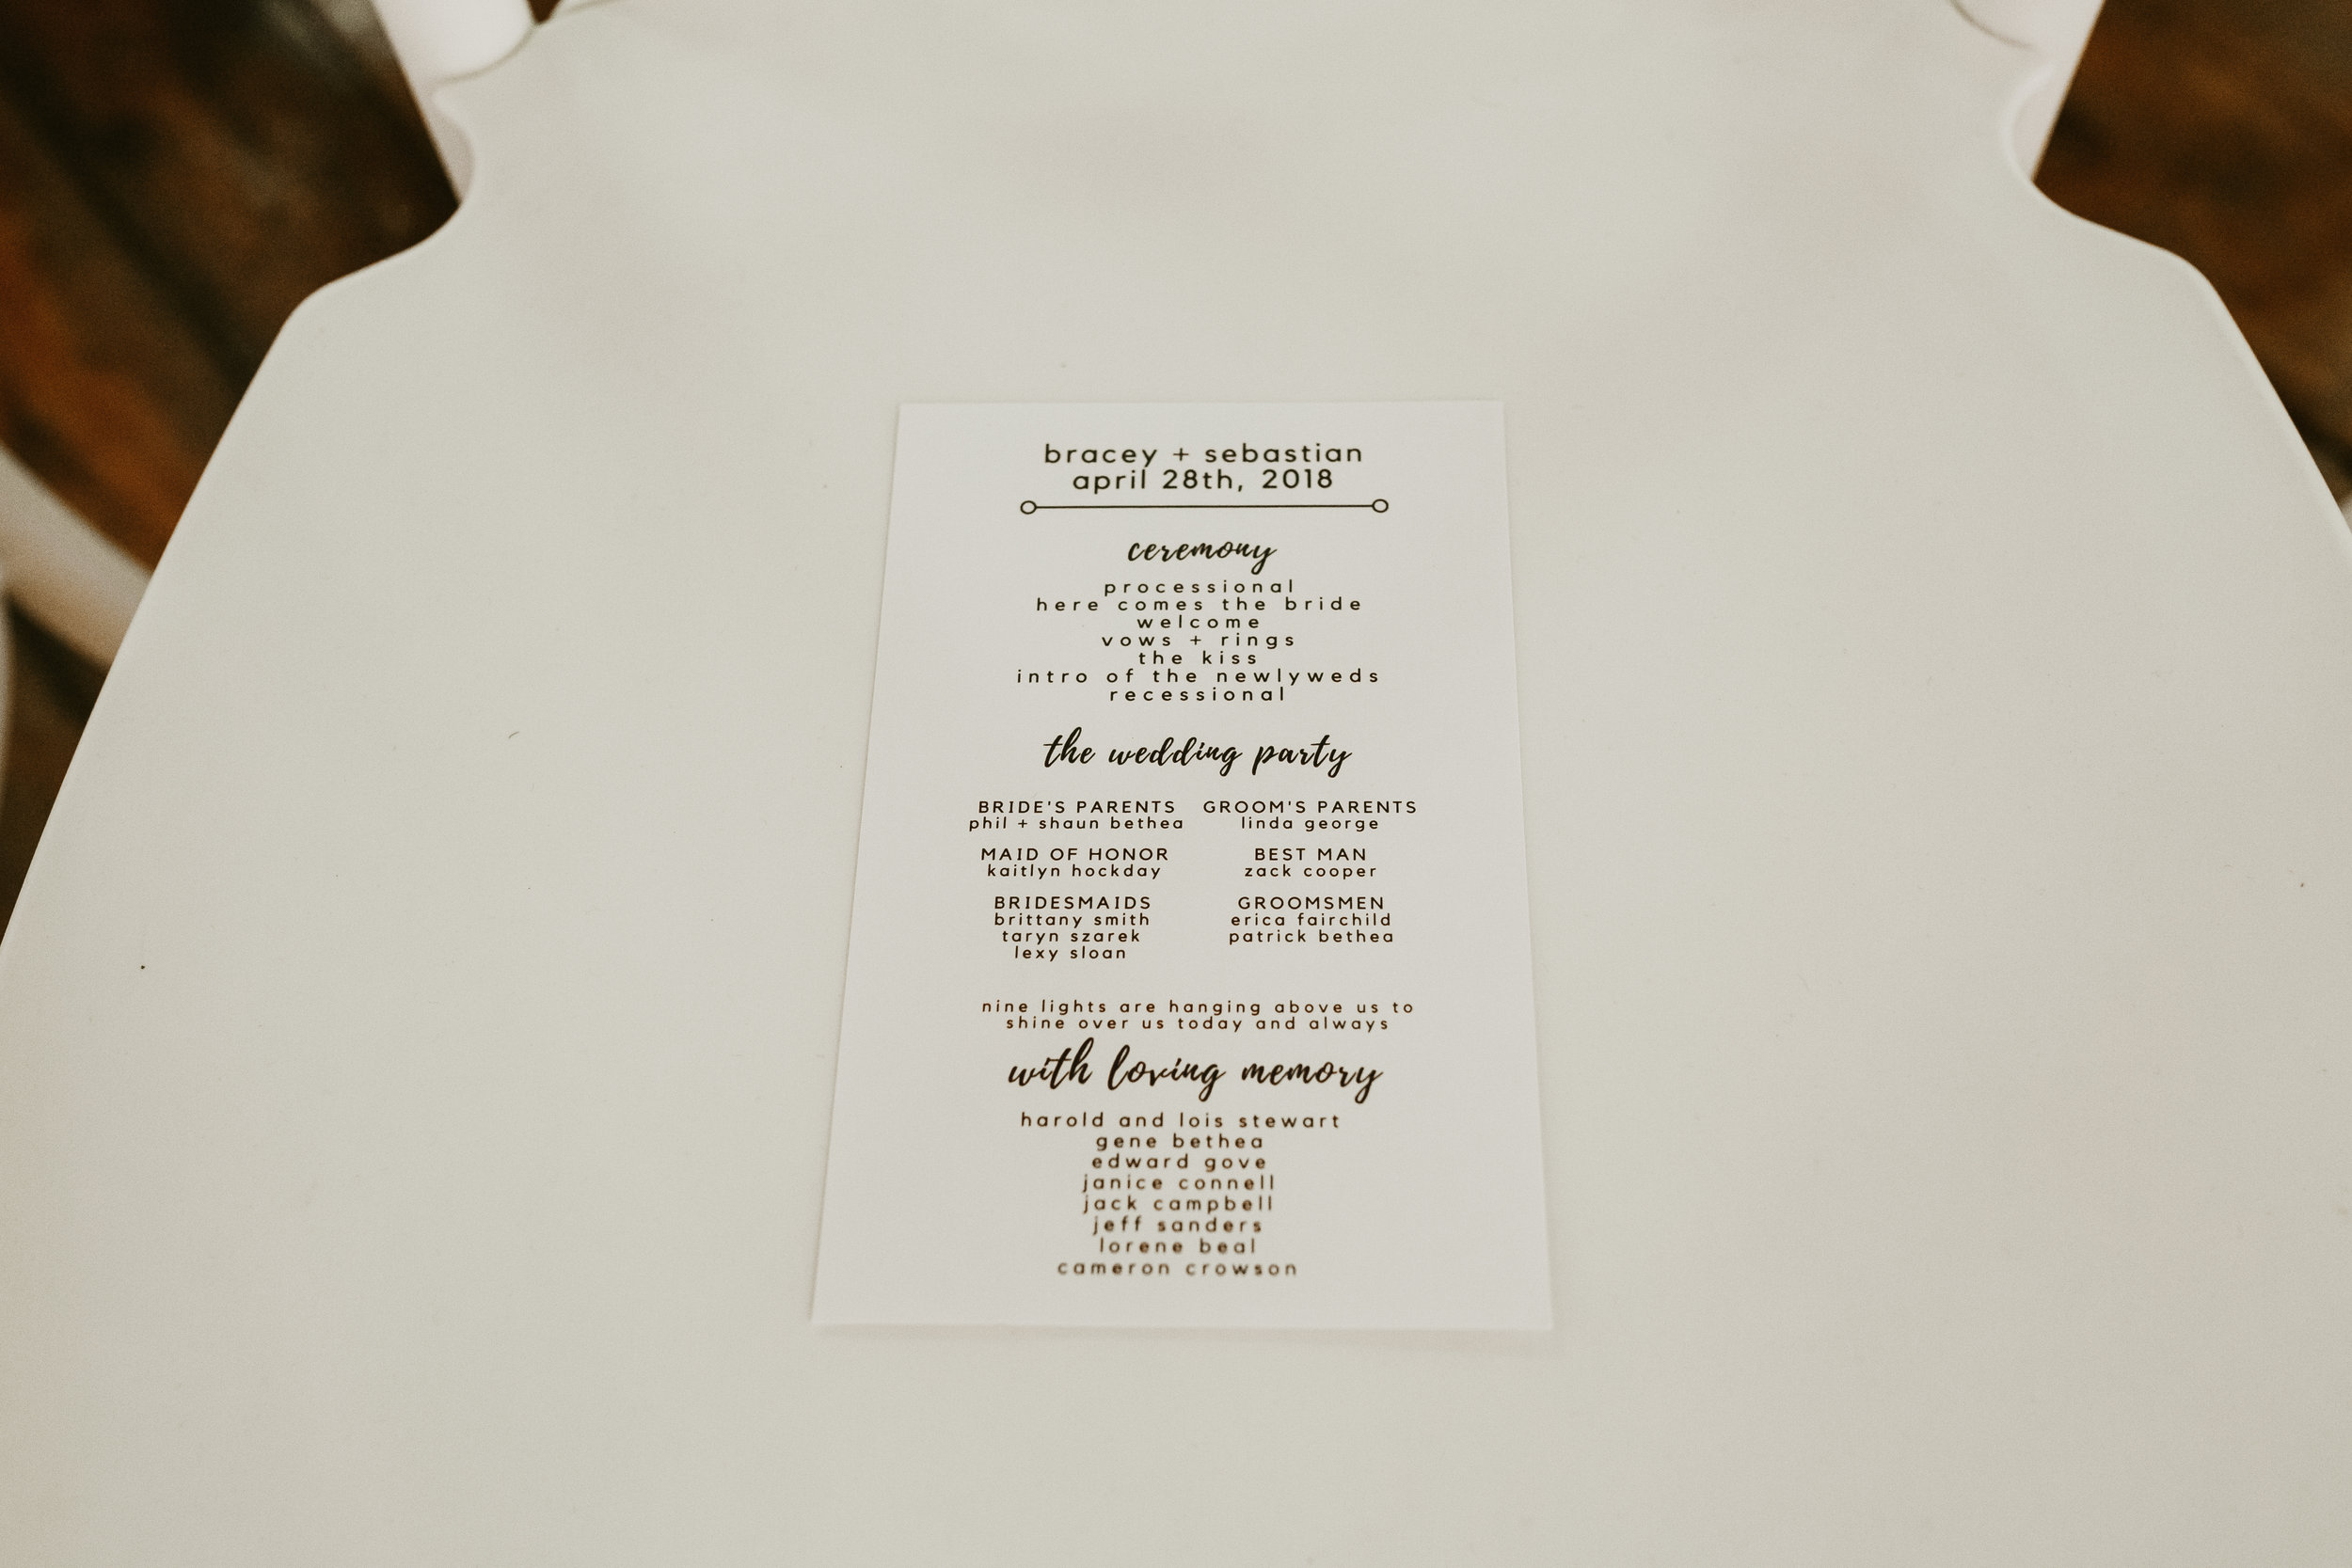 bracey + sebastian
april 28th, 2018
ceremony
processional
here comes the bride
welcome
vows + rings
the kiss
intro of the newlyweds
recessional
the wedding party
BRIDE'S PARENTS
phil + shaun bethea
GROOM'S PARENTS
linda george
MAID OF HONOR
kaitlyn hockday
BEST MAN
zack cooper
BRIDESMAIDS
brittany smith
taryn szarek
lexy sloan
GROOMSMEN
erica fairchild
patrick bethea
nine lights are hanging above us to
shine over us today and always
with loving memory
harold and lois stewart
gene bethea
edward gove
janice connell
jack campbell
jeff sanders
lorene beal
cameron crowson